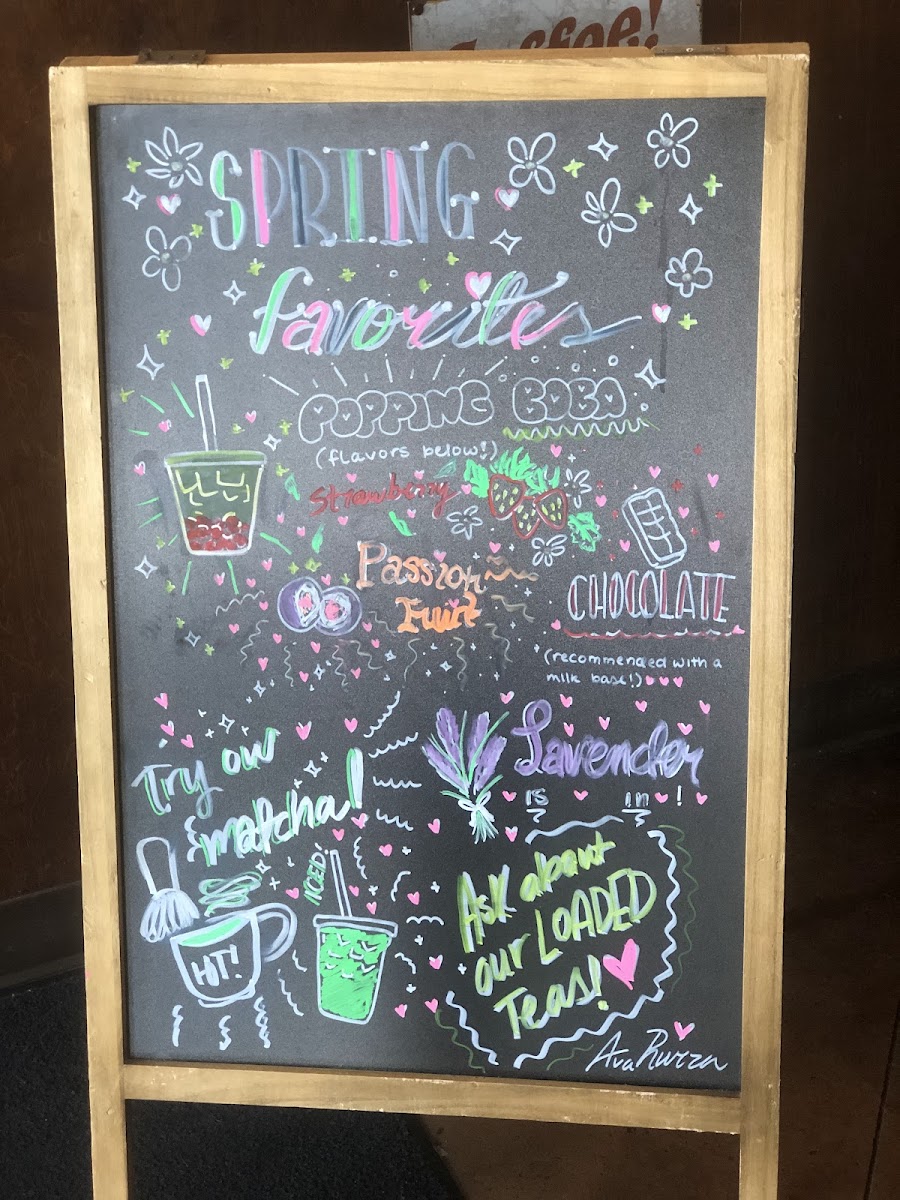 Coffee!
SPRING
favorites
POPPING BOBA
(flavors below!)
Strawberry
Passion
Fruit
CHOCOLATE
(recommended with a
milk base!)
Try our
matcha!
Lavender
is in!
ICED!
HOT!
Ask about
our LOADED
Teas!
Ava